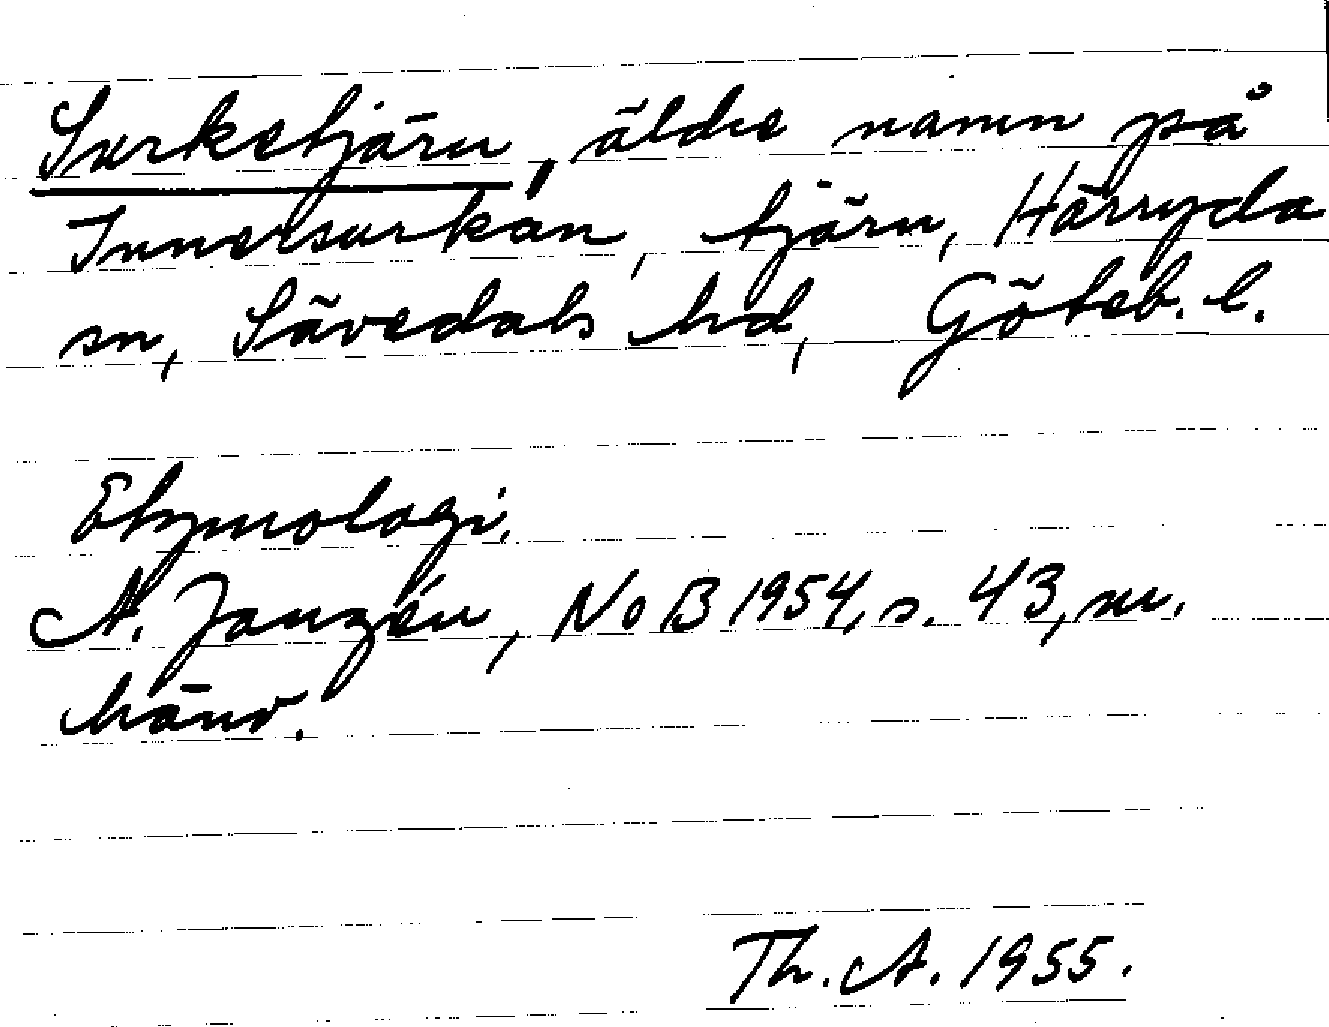 Surketjärn, äldre namn på
Innersurkan, tjärn, Härryda
sn, Sävedals hd, Göteb. l.
Etymologi.
A. Janzén, NoB 1954, s. 43, m.
hänv.
Th. A. 1955.